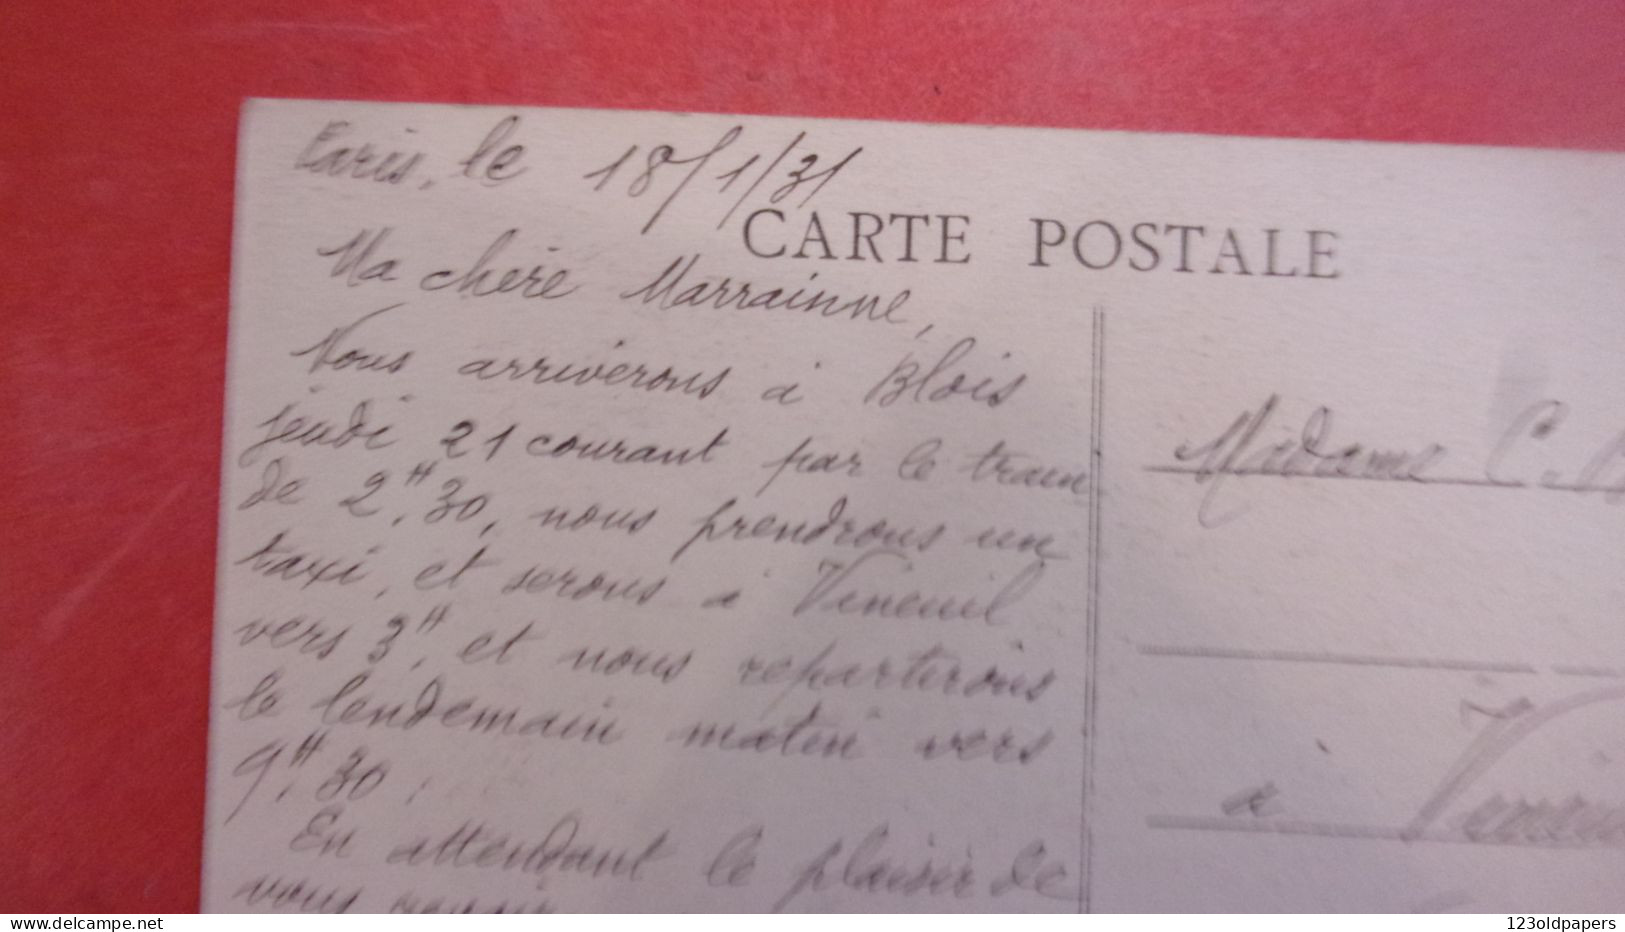 Paris, le 18/1/31
CARTE POSTALE
Ma chère Marrainne,
Nous arriverons à Blois
jeudi 21 courant par le train
de 2H,30, nous prendrons un
taxi, et serons à Vineuil
vers 3H, et nous repartirons
le lendemain matin vers
9H,30.
En attendant le plaisir de
vous revoir
Madame C.
à
123oldpapers